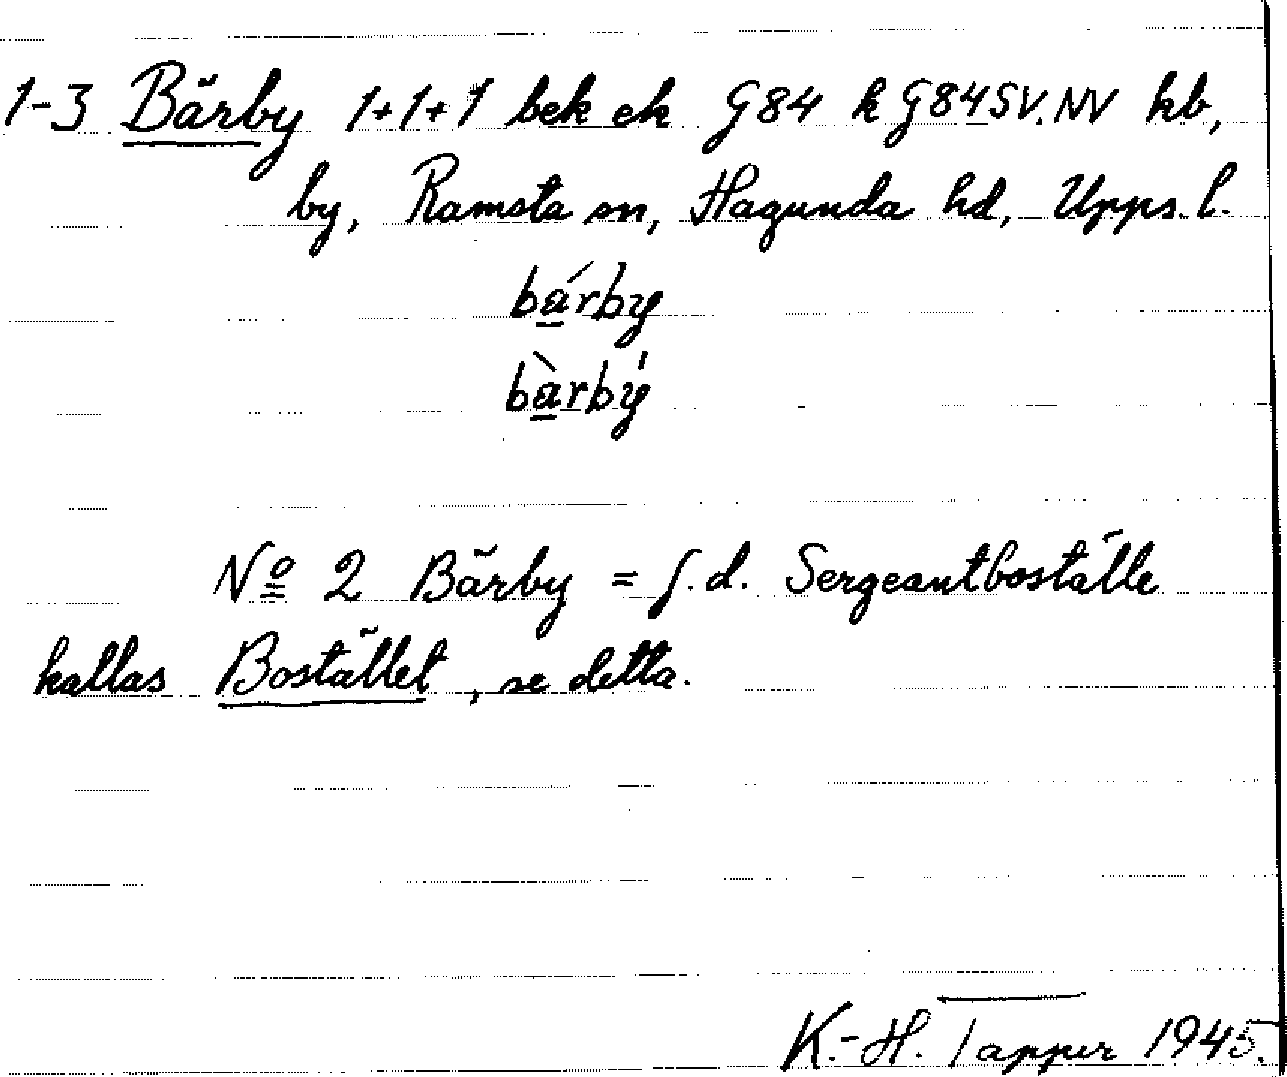 1-3 Bärby 1+1+1 bek ek G84 k G84SV.NV kb,
by, Ramsta sn, Hagunda hd, Upps. l.
bárby
bàrbý
No 2 Bärby = f.d. Sergeantboställe
kallas Bostället, se detta.
K.-H. Tapper 1945.